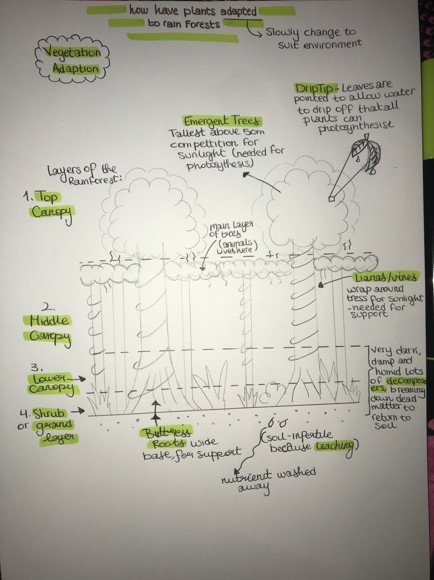 how have plants adapted
to rain Forests
Slowly change to
suit environment
Vegetation
Adaption
DripTip- Leaves are
pointed to allow water
to drip off that all
plants can
photosynthesise
Emergent Trees
Tallest above 50m
compettition for
sunlight (needed for
photosythesis)
Layers of the
Rainforest:
1. Top
Canopy
main layer
of trees
(animals
lives here)
Lianas/vines
wrap around
tress for sunlight
-needed for
support
2.
Middle
Canopy
3.
Lower
Canopy
very dark,
damp and
humid lots
of decompos
ers breaking
down dead
matter to
return to
soil
4. Shrub
or ground
layer
Buttress
Roots wide
base, for support
(soil-infertile
because leaching)
nutrient washed
away